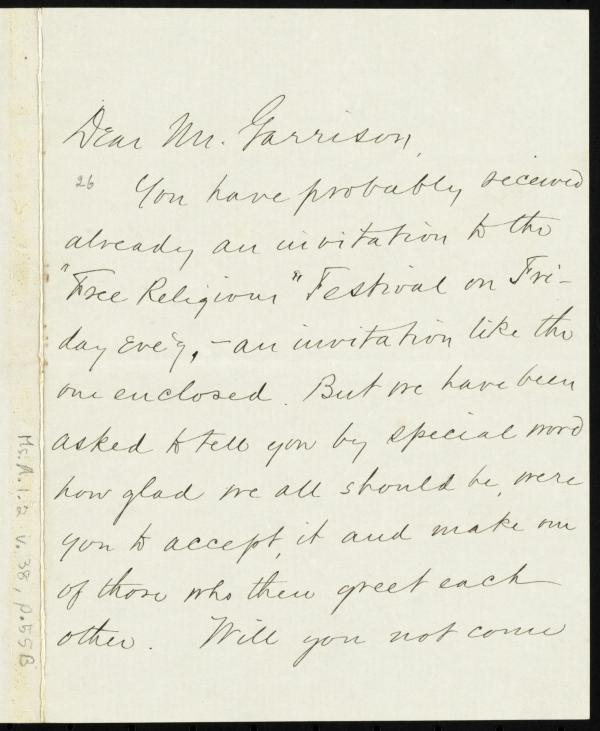 Dear Mr. Garrison,
26
You have probably received
already an invitation to the
"Free Religious" Festival on Fri-
day eve'g, - an invitation like the
one enclosed. But we have been
asked to tell you by special word
how glad we all should be, were
you to accept it and make one
of those who then greet each
other. Will you not come
Ms.A.1.2 v.38, p.55B